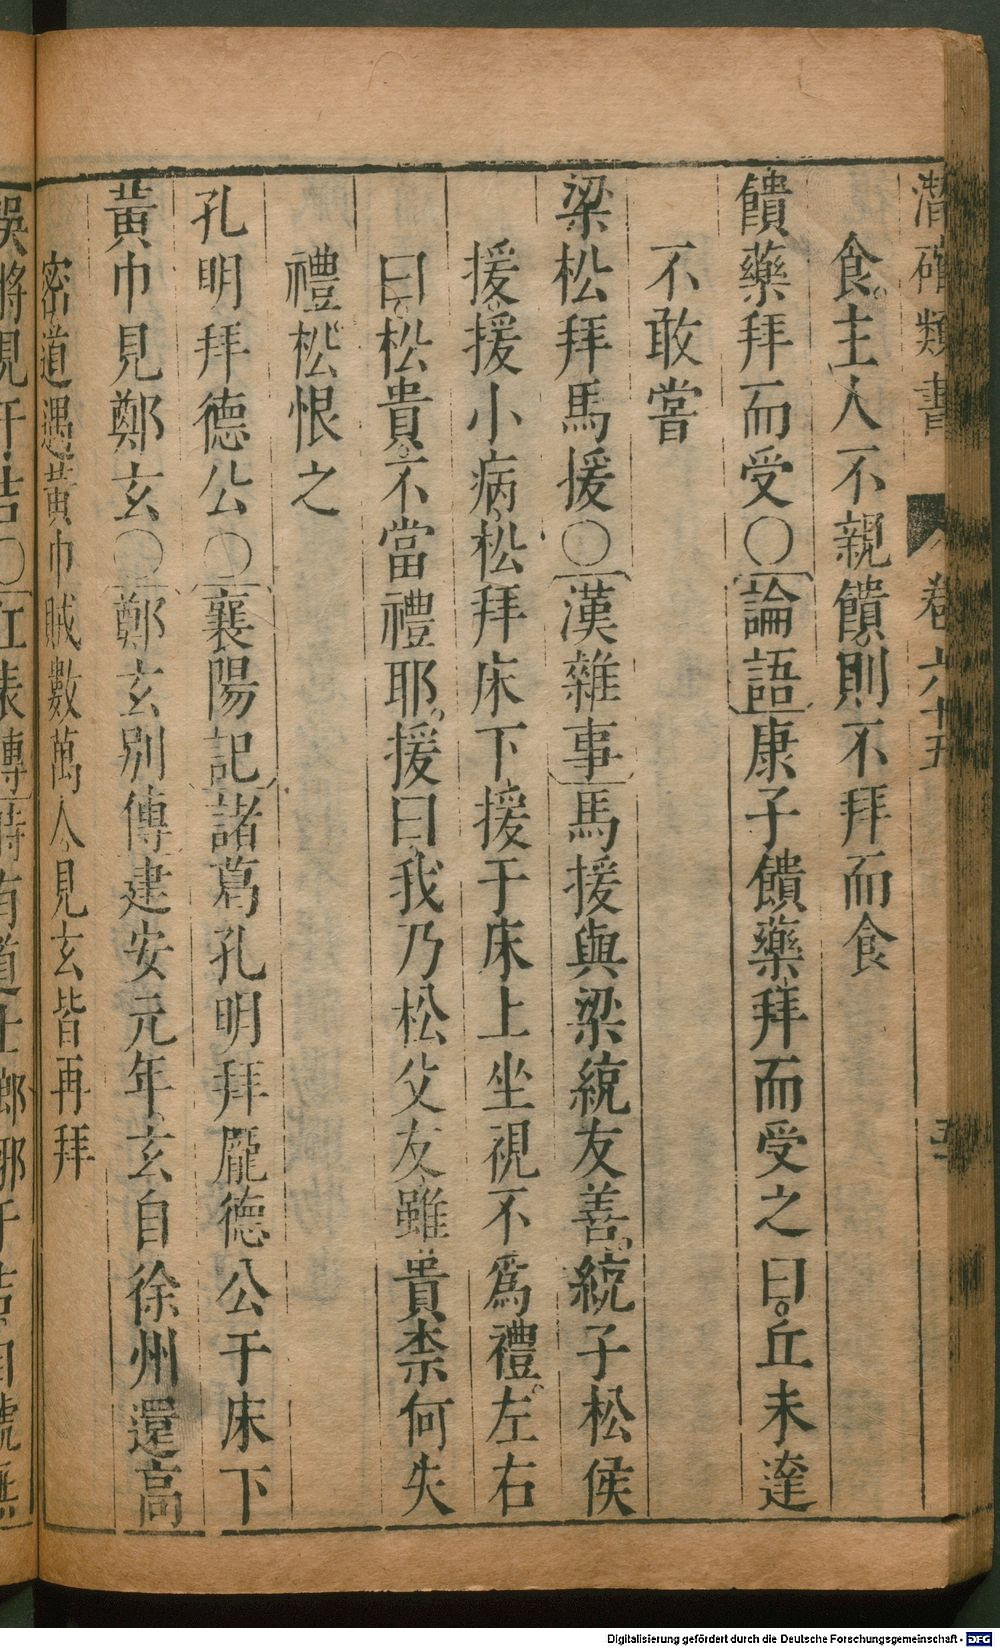 潛確類書 卷六十五 五
食主人不親饋則不拜而食
饋藥拜而受○論語康子饋藥拜而受之曰丘未達
不敢嘗
梁松拜馬援○漢雜事馬援與梁統友善統子松侯
援援小病松拜床下援于床上坐視不爲禮左右
曰松貴不當禮耶援曰我乃松父友雖貴柰何失
禮松恨之
孔明拜德公○襄陽記諸葛孔明拜龐德公于床下
黃巾見鄭玄○鄭玄別傳建安元年玄自徐州還高
密道遇黃巾賊數萬人見玄皆再拜
Digitalisierung gefördert durch die Deutsche Forschungsgemeinschaft - DFG